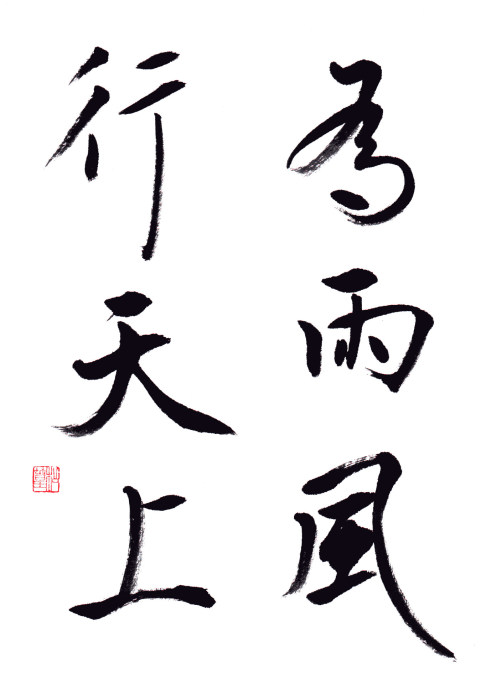 為雨風
行天上